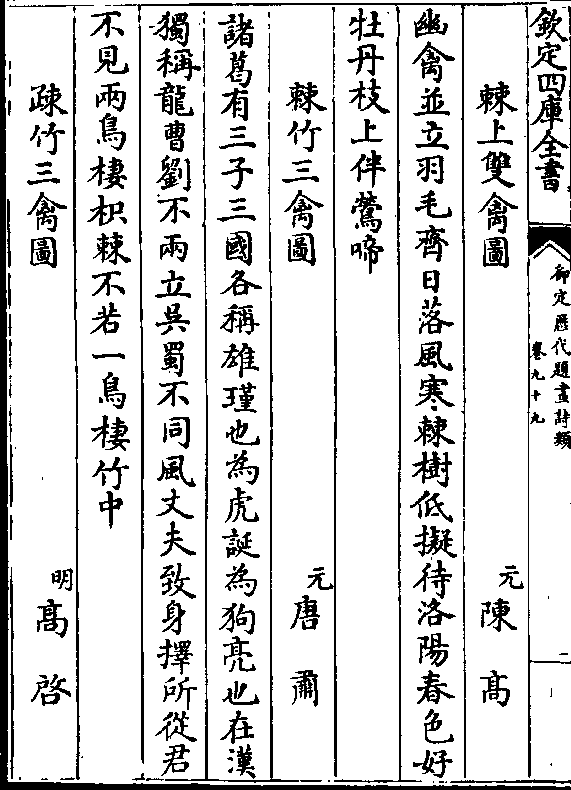 欽定四庫全書
御定歷代題畫詩類
卷九十九
二
棘上雙禽圖　元　陳高
幽禽並立羽毛齊日落風寒棘樹低擬待洛陽春色好
牡丹枝上伴鶯啼
棘竹三禽圖　元　唐肅
諸葛有三子三國各稱雄瑾也為虎誕為狗亮也在漢
獨稱龍曹劉不兩立吳蜀不同風丈夫致身擇所從君
不見兩鳥棲枳棘不若一鳥棲竹中
疎竹三禽圖　明　高啓